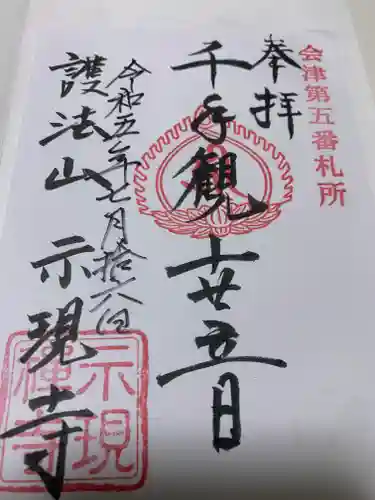 会津第五番札所
奉拝
千手觀世音
令和五年七月拾六日
護法山 示現寺
示現
禅寺